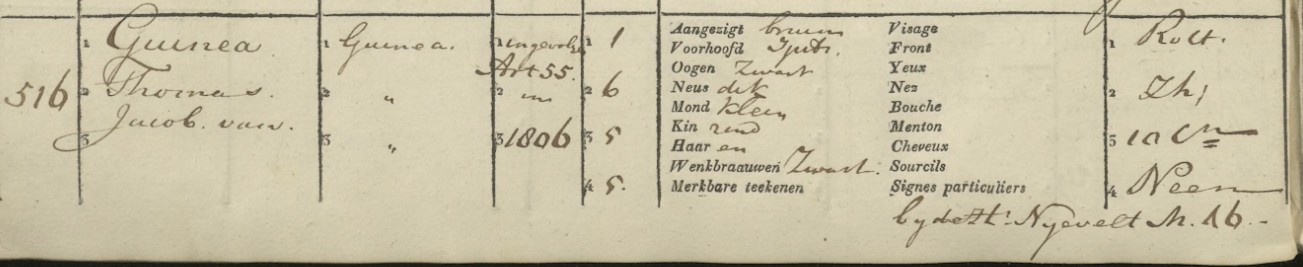 516
1 Guinea
2 Thomas.
Jacob. van.
3
1 Guinea.
2 „
3 „
1 ingevolge
Art 55.
2 in
3 1806
1 1
2 6
3 5
4 5.
Aangezigt bruin Visage
Voorhoofd Front
Oogen Zwart Yeux
Neus dik Nez
Mond klein Bouche
Kin rond Menton
Haar en Cheveux
Wenkbraauwen Zwart. Sourcils
Merkbare teekenen Signes particuliers
1 Rott.
2 Zh;
3
4 Neen
by de Zh: Nyevelt